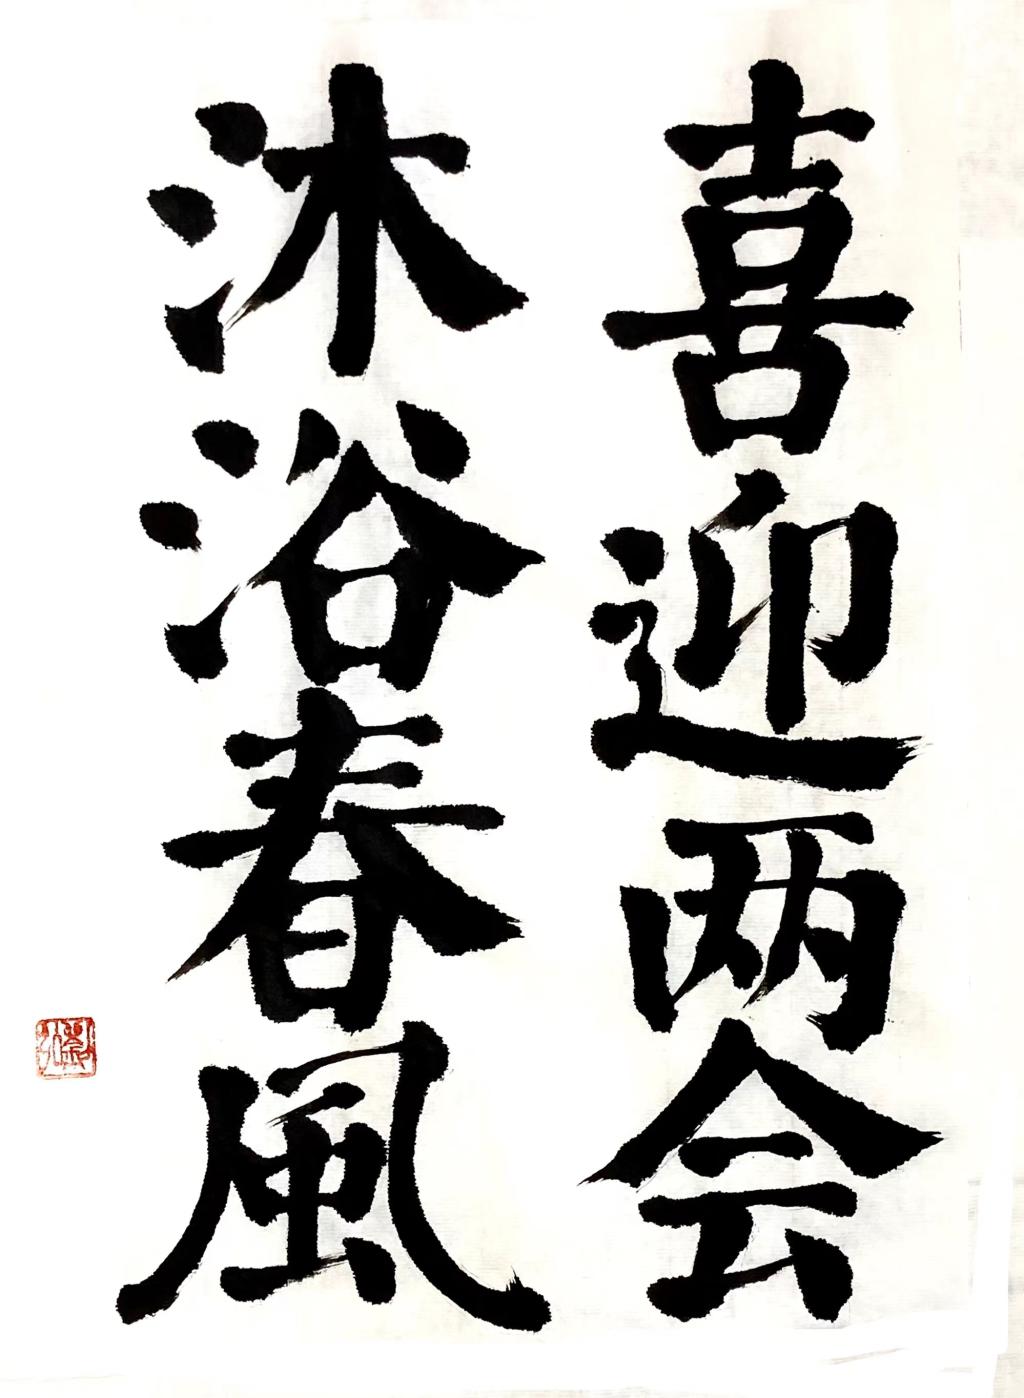 喜迎两会
沐浴春風